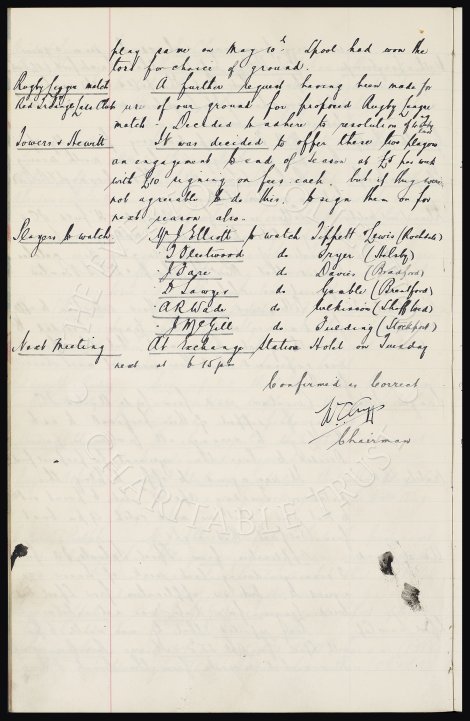 play same on May 10th. L'pool had won the
toss for choice of ground.
Rugby League match A further request having been made for
use of our ground for proposed Rugby League
match. Decided to adhere to resolution of
Towers & Hewitt It was decided to offer these two players
an engagement to end of season at £5 per week
with £10 signing on fees each, but if they were
not agreeable to do this, to sign them on for
next season also.
Players to watch Mr J Elliott to watch Tippett & Lewis (Rochdale)
T Fleetwood do Fryer (Helsby)
J Fare do Davies (Bradford)
D Sawyer do Gamble (Brentford)
A R Wade do Wilkinson (Sheff Wed)
J McGill do (Stockport)
Next Meeting At Exchange Station Hotel on Tuesday
next at 6 15 pm
Confirmed as Correct
Chairman
THE EVERTON
CHARITABLE TRUST